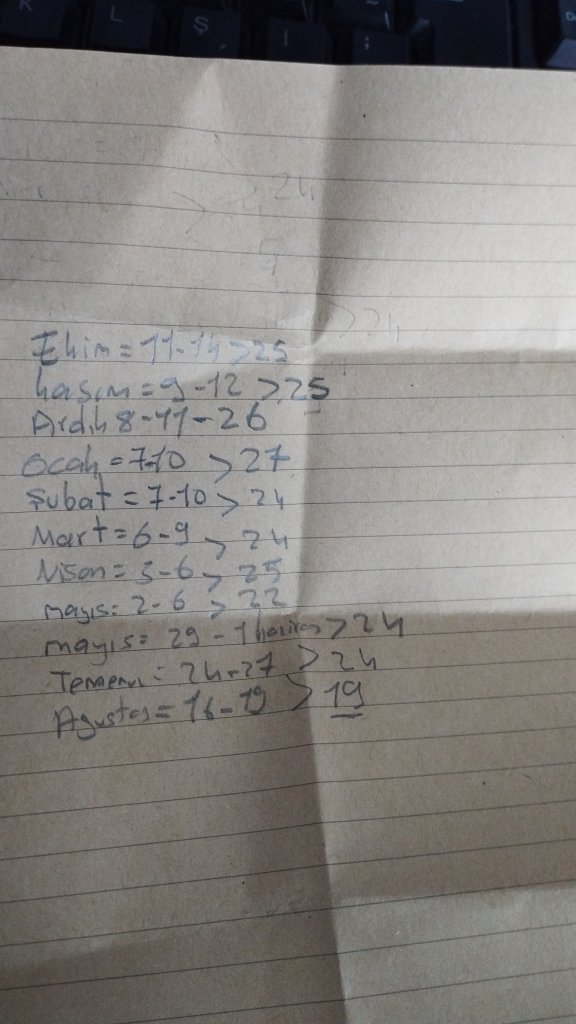 K L Ş İ ;
24
24
Ekim = 11-14 > 25
kasım = 9-12 > 25
Aralık 8-11-26
Ocak = 7-10 > 27
Şubat = 7-10 > 24
Mart = 6-9 > 24
Nisan = 3-6 > 25
mayıs = 2-6 > 22
mayıs = 29-1 haziran > 24
Temmuz = 24-27 > 24
Agustos = 16-19 > 19